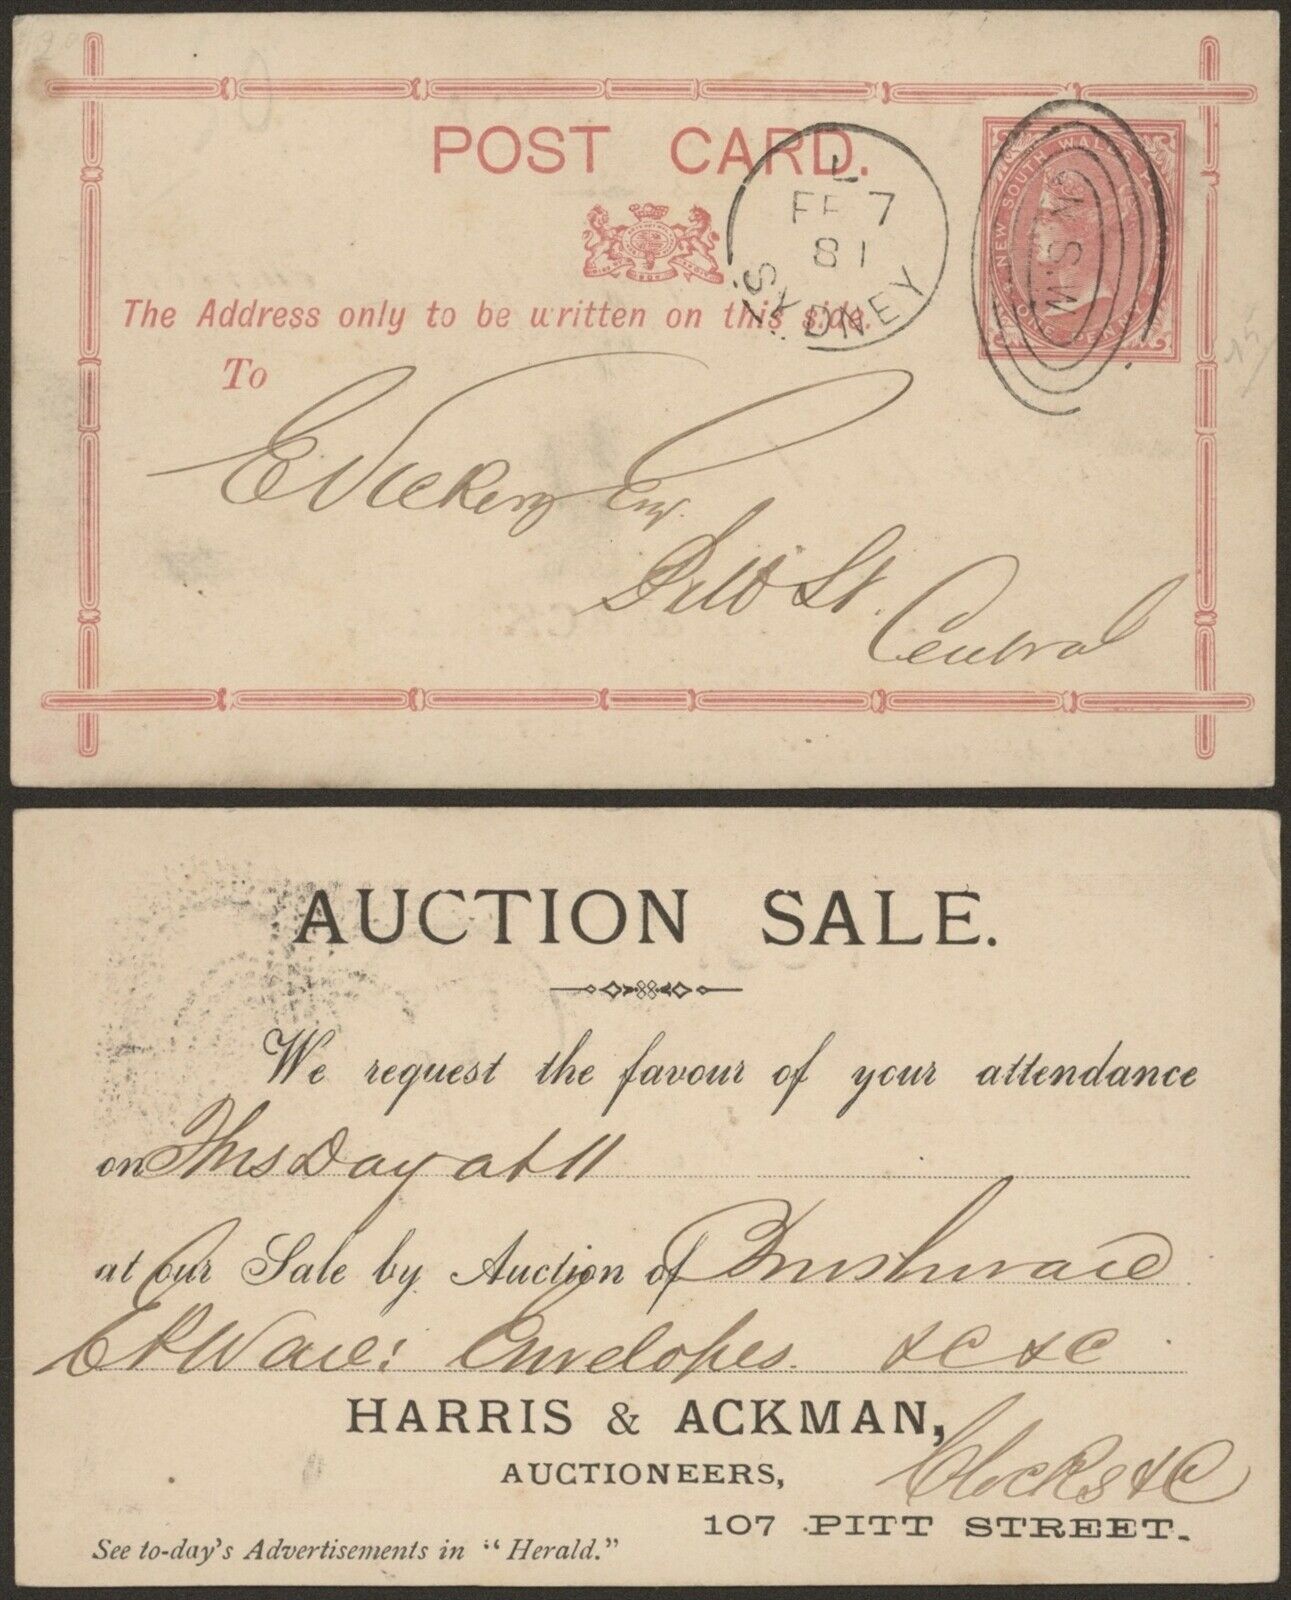 POST CARD.
L
FE 7
81
SYDNEY
N.S.W.
NEW SOUTH WALES
ONE PENNY
The Address only to be written on this side.
To
E Vickery Esq.
Pitt St.
Central
AUCTION SALE.
We request the favour of your attendance
on This Day at 11
at our Sale by Auction of Brushware
EPWare: Envelopes &C &C
HARRIS & ACKMAN,
AUCTIONEERS, Clocks &C
107 PITT STREET.
See to-day's Advertisements in "Herald."